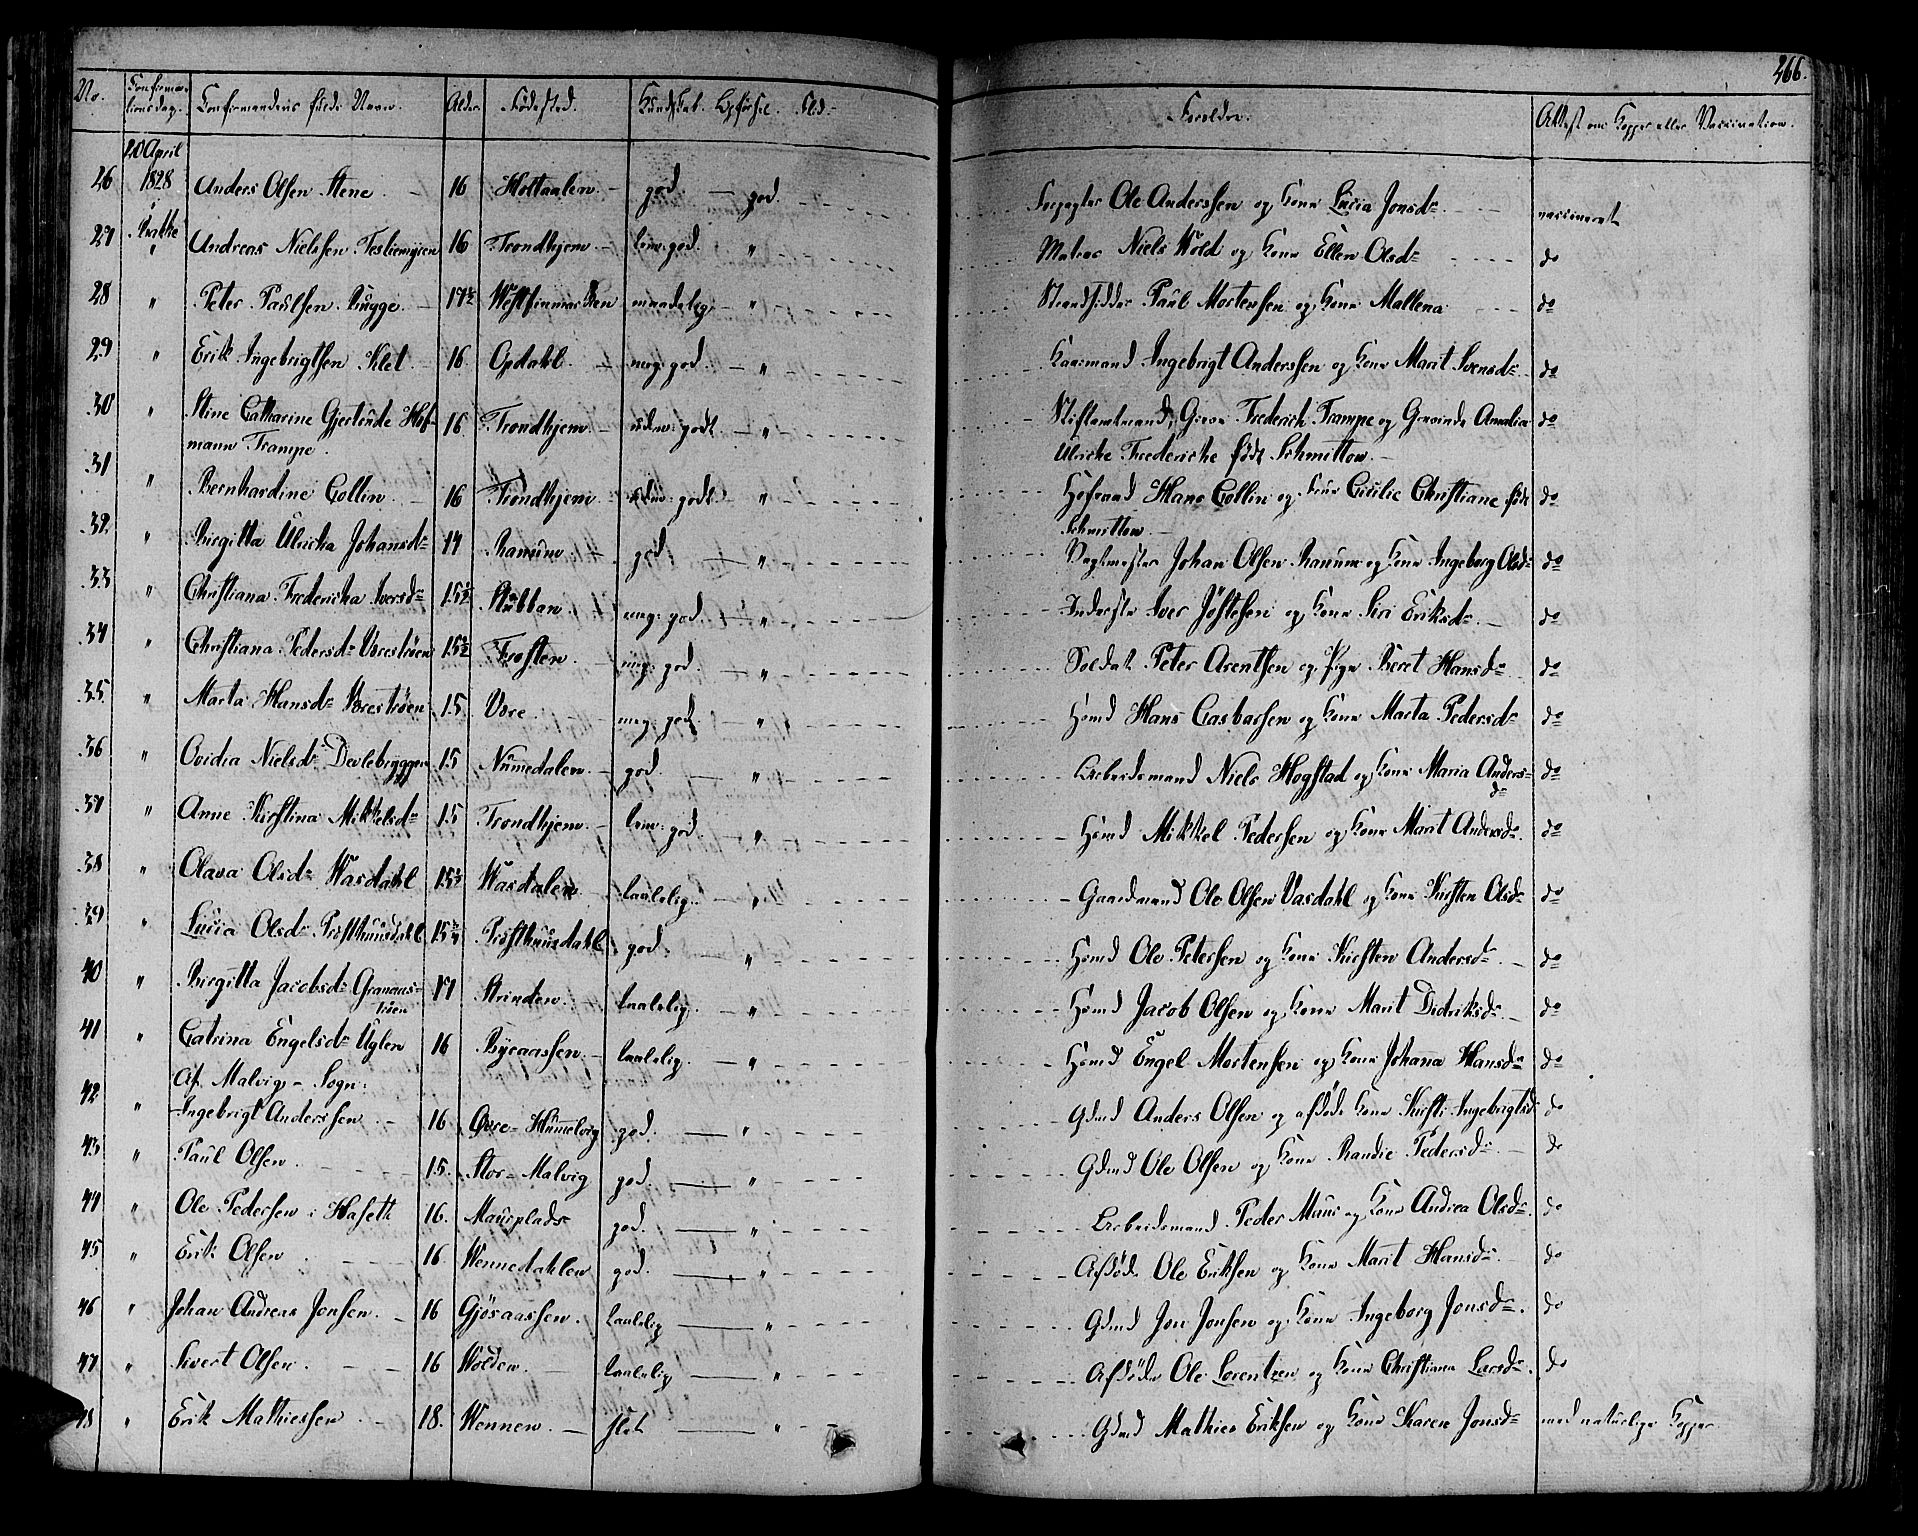 266.
No. Confirmationsdag. Confirmandens fulde Navn. Alder Födested. Kundskab. Opförsel. Flid. Foreldre. Attest om Kopper eller Vaccination.
20 April
26 1828 Anders Olsen Stene 16 Holtaalen god. god. Ole Anderssen og Kone Lucia Jonsdr vaccineret
27 Andreas Nielssen Fesliemyren 16 Trondhjem. " Matros Niels Wold og Kone Ellen Olsdr do
28 " Peter Paulsen Bugge. 17½ Westfinmarken maadelig " Strandsidder Paul Mortensen og Kone Mallena do
29 " Erik Ingebrigtsen Klet 16 Opdahl. meg: god. " Ingebrigt Anderssen og Kone Marit Svensdr do
30 " Stine Catharine Gjertrude Hof- 16. Trondhjem. udm: godt " Stiftamtmand, Greve Frederich Trampe og Grevinde Amalia do
mann Trampe. Ulricke Fredericke födt Schmittow.
31 " Bernhardine Collin 16 Trondhjem. udm: godt. " Hofraad Hans Collin og Kone Cicilie Christiane födt do
Schmittow
32 " Birgitta Ulricka Johansdr 17 Ranum god " Vagtmester Johan Olsen Ranum og Kone Ingeborg Olsdr do
33 " Christiana Fredericka Iversdr 15½ Stubban. meg: god. " Inderste Iver Jöstesen og Kone Siri Eriksdr do
34 " Christiana Pedersdr Vorestrøen 15½ Frosten. meg: god. " Soldat Peter Arentsen og Pige Beret Hansdr do
35 " Marta Hansdr Vorestrøen 15 Vore. meg: god " Hsmd Hans Casbarsen og Kone Marta Pedersdr do
36 " Ovidia Nielsdr Devlebryggen 15 Numedalen god. " Arbeidsmand Niels Hogstad og Kone Maria Anders- do
dr
37 " Anne Kirstina Mikkelsdr 15 Trondhjem. god. " Hsmd Mikkel Pedersen og Kone Marit Andersdr do
38 " Olava Olsdr Wasdahl 15½ Wasdalen taalelig. " Gaardmand Ole Olsen Vasdahl og Kone Kirsten Olsdr do
39 " Lucia Olsdr Præsthuusdahl 15¾ Præsthuusdahl god. " Hsmd Ole Petersen og Kone Kirsten Andersdr do
40 " Birgitta Jacobsdr Granaas- 17 Strinden. taalelig. " Hsmd Jacob Olsen og Kone Marit Didriksdr do
trøen
41 " Catrina Engelsdr Uglen 16 Byeaassen. taalelig " Hsmd Engel Mortensen og Kone Johana Hansdr do
Af Malvig - Sogn:
42 " Ingebrigt Anderssen 16 Øvre-Hummelvig god. " Gdmd Anders Olsen og afdöde Kone Kirsti Ingebrigtsdr do
43 " Paul Olsen. 15. Stor-Malvig god. " Gdmd Ole Olsen og Kone Randie Pedersdr do
44 " Ole Pedersen i Hafeth 16. Muurplads god. " Arbeidsmand Peder Muur og Kone Andrea Olsdr. do
45 " Erik Olsen 16. Wennedahlen god. " Afdöde Ole Eriksen og Kone Marit Hansdr do
46 " Johan Andreas Jonsen. 16 Gjösaassen. taalelig " Gdmd Jon Jonsen og Kone Ingeborg Jonsdr. do
47 " Sivert Olsen. 16 Wolden. taalelig " Afdöde Ole Lorentzen og Kone Christiana Larsdr. do
48 " Erik Mathiessen 18. Wennen. slet " Gdmd Mathies Eriksen og Kone Karen Jonsdr med naturlige Kopper